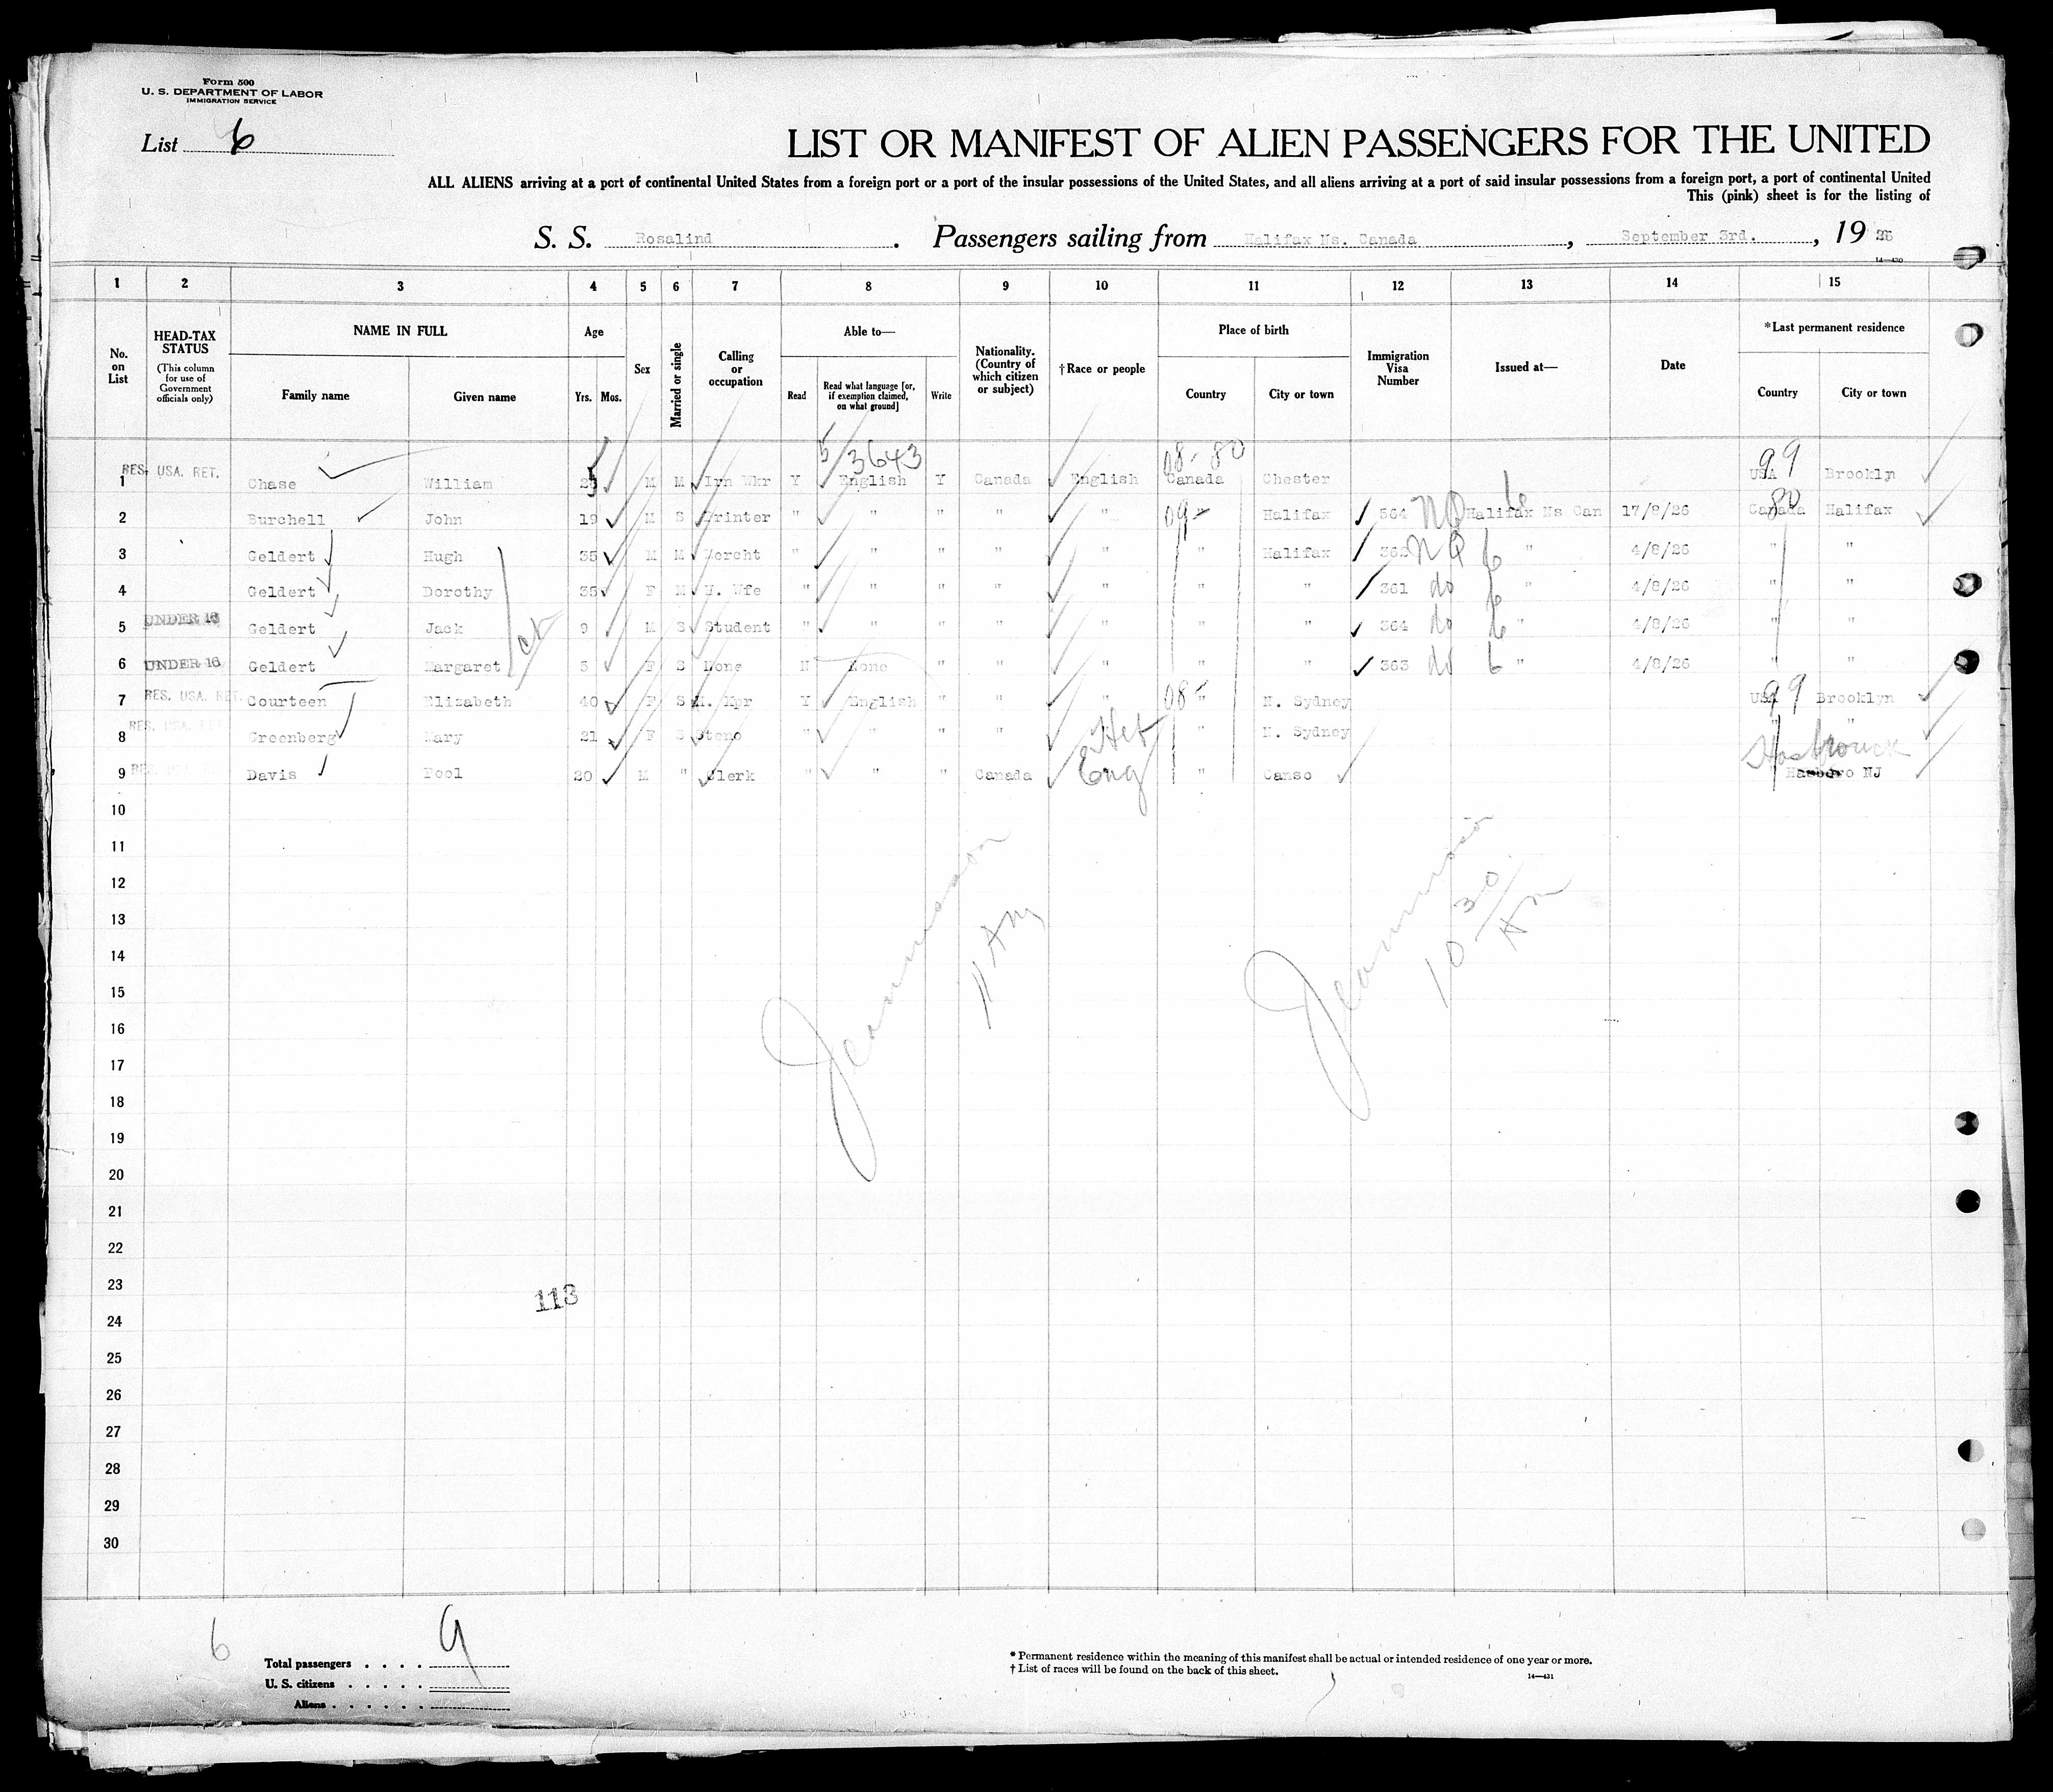 Form 500
U. S. DEPARTMENT OF LABOR
IMMIGRATION SERVICE
List 6
LIST OR MANIFEST OF ALIEN PASSENGERS FOR THE UNITED
ALL ALIENS arriving at a port of continental United States from a foreign port or a port of the insular possessions of the United States, and all aliens arriving at a port of said insular possessions from a foreign port, a port of continental United
This (pink) sheet is for the listing of
S. S. Rosalind. Passengers sailing from Halifax Ns. Canada, September 3rd., 19 26
14—430
1 2 3 4 5 6 7 8 9 10 11 12 13 14 15
No. on List
HEAD-TAX STATUS
(This column for use of Government officials only)
NAME IN FULL
Family name Given name
Age
Yrs. Mos.
Sex
Married or single
Calling or occupation
Able to—
Read
Read what language [or, if exemption claimed, on what ground]
Write
Nationality. (Country of which citizen or subject)
†Race or people
Place of birth
Country City or town
Immigration Visa Number
Issued at—
Date
*Last permanent residence
Country City or town
5/3643 08-80 99
1 RES. USA. RET. Chase William M M Irn Wkr Y English Y Canada English Canada Chester USA Brooklyn
2 Burchell John 19 M S Printer " " " " " 09- " Halifax 564 NQ Halifax Ns Can 17/8/26 80 Canada Halifax
3 Geldert Hugh 35 M M Mercht " " " " " " Halifax 362 NQ 6 " 4/8/26 " "
4 Geldert Dorothy 35 F M H. Wfe " " " " " " " 361 do 6 " 4/8/26 " "
5 UNDER 16 Geldert Jack 9 M S Student " " " " " " " 364 do 6 " 4/8/26 " "
6 UNDER 16 Geldert Margaret 5 F S None N None " " " " " 363 do 6 " 4/8/26 " "
7 RES. USA. RET. Courteen Elizabeth 40 F S H. Kpr Y English " " " 08- " N. Sydney USA 99 Brooklyn
8 RES. USA. RET. Greenberg Mary 21 F S Steno " " " " Heb " N. Sydney " "
Hasbrouck
9 Davis Pool 20 M " Clerk " " " Canada Eng " Canso Hasboro NJ
10
11
12
13
14
15
16
17
18
19
20
21
22
23
24
25
26
27
28
29
30
11 AM
10 30 AM
113
6
Total passengers . . . . 9
U. S. citizens . . . . .
Aliens . . . . . .
* Permanent residence within the meaning of this manifest shall be actual or intended residence of one year or more.
† List of races will be found on the back of this sheet.
14—431